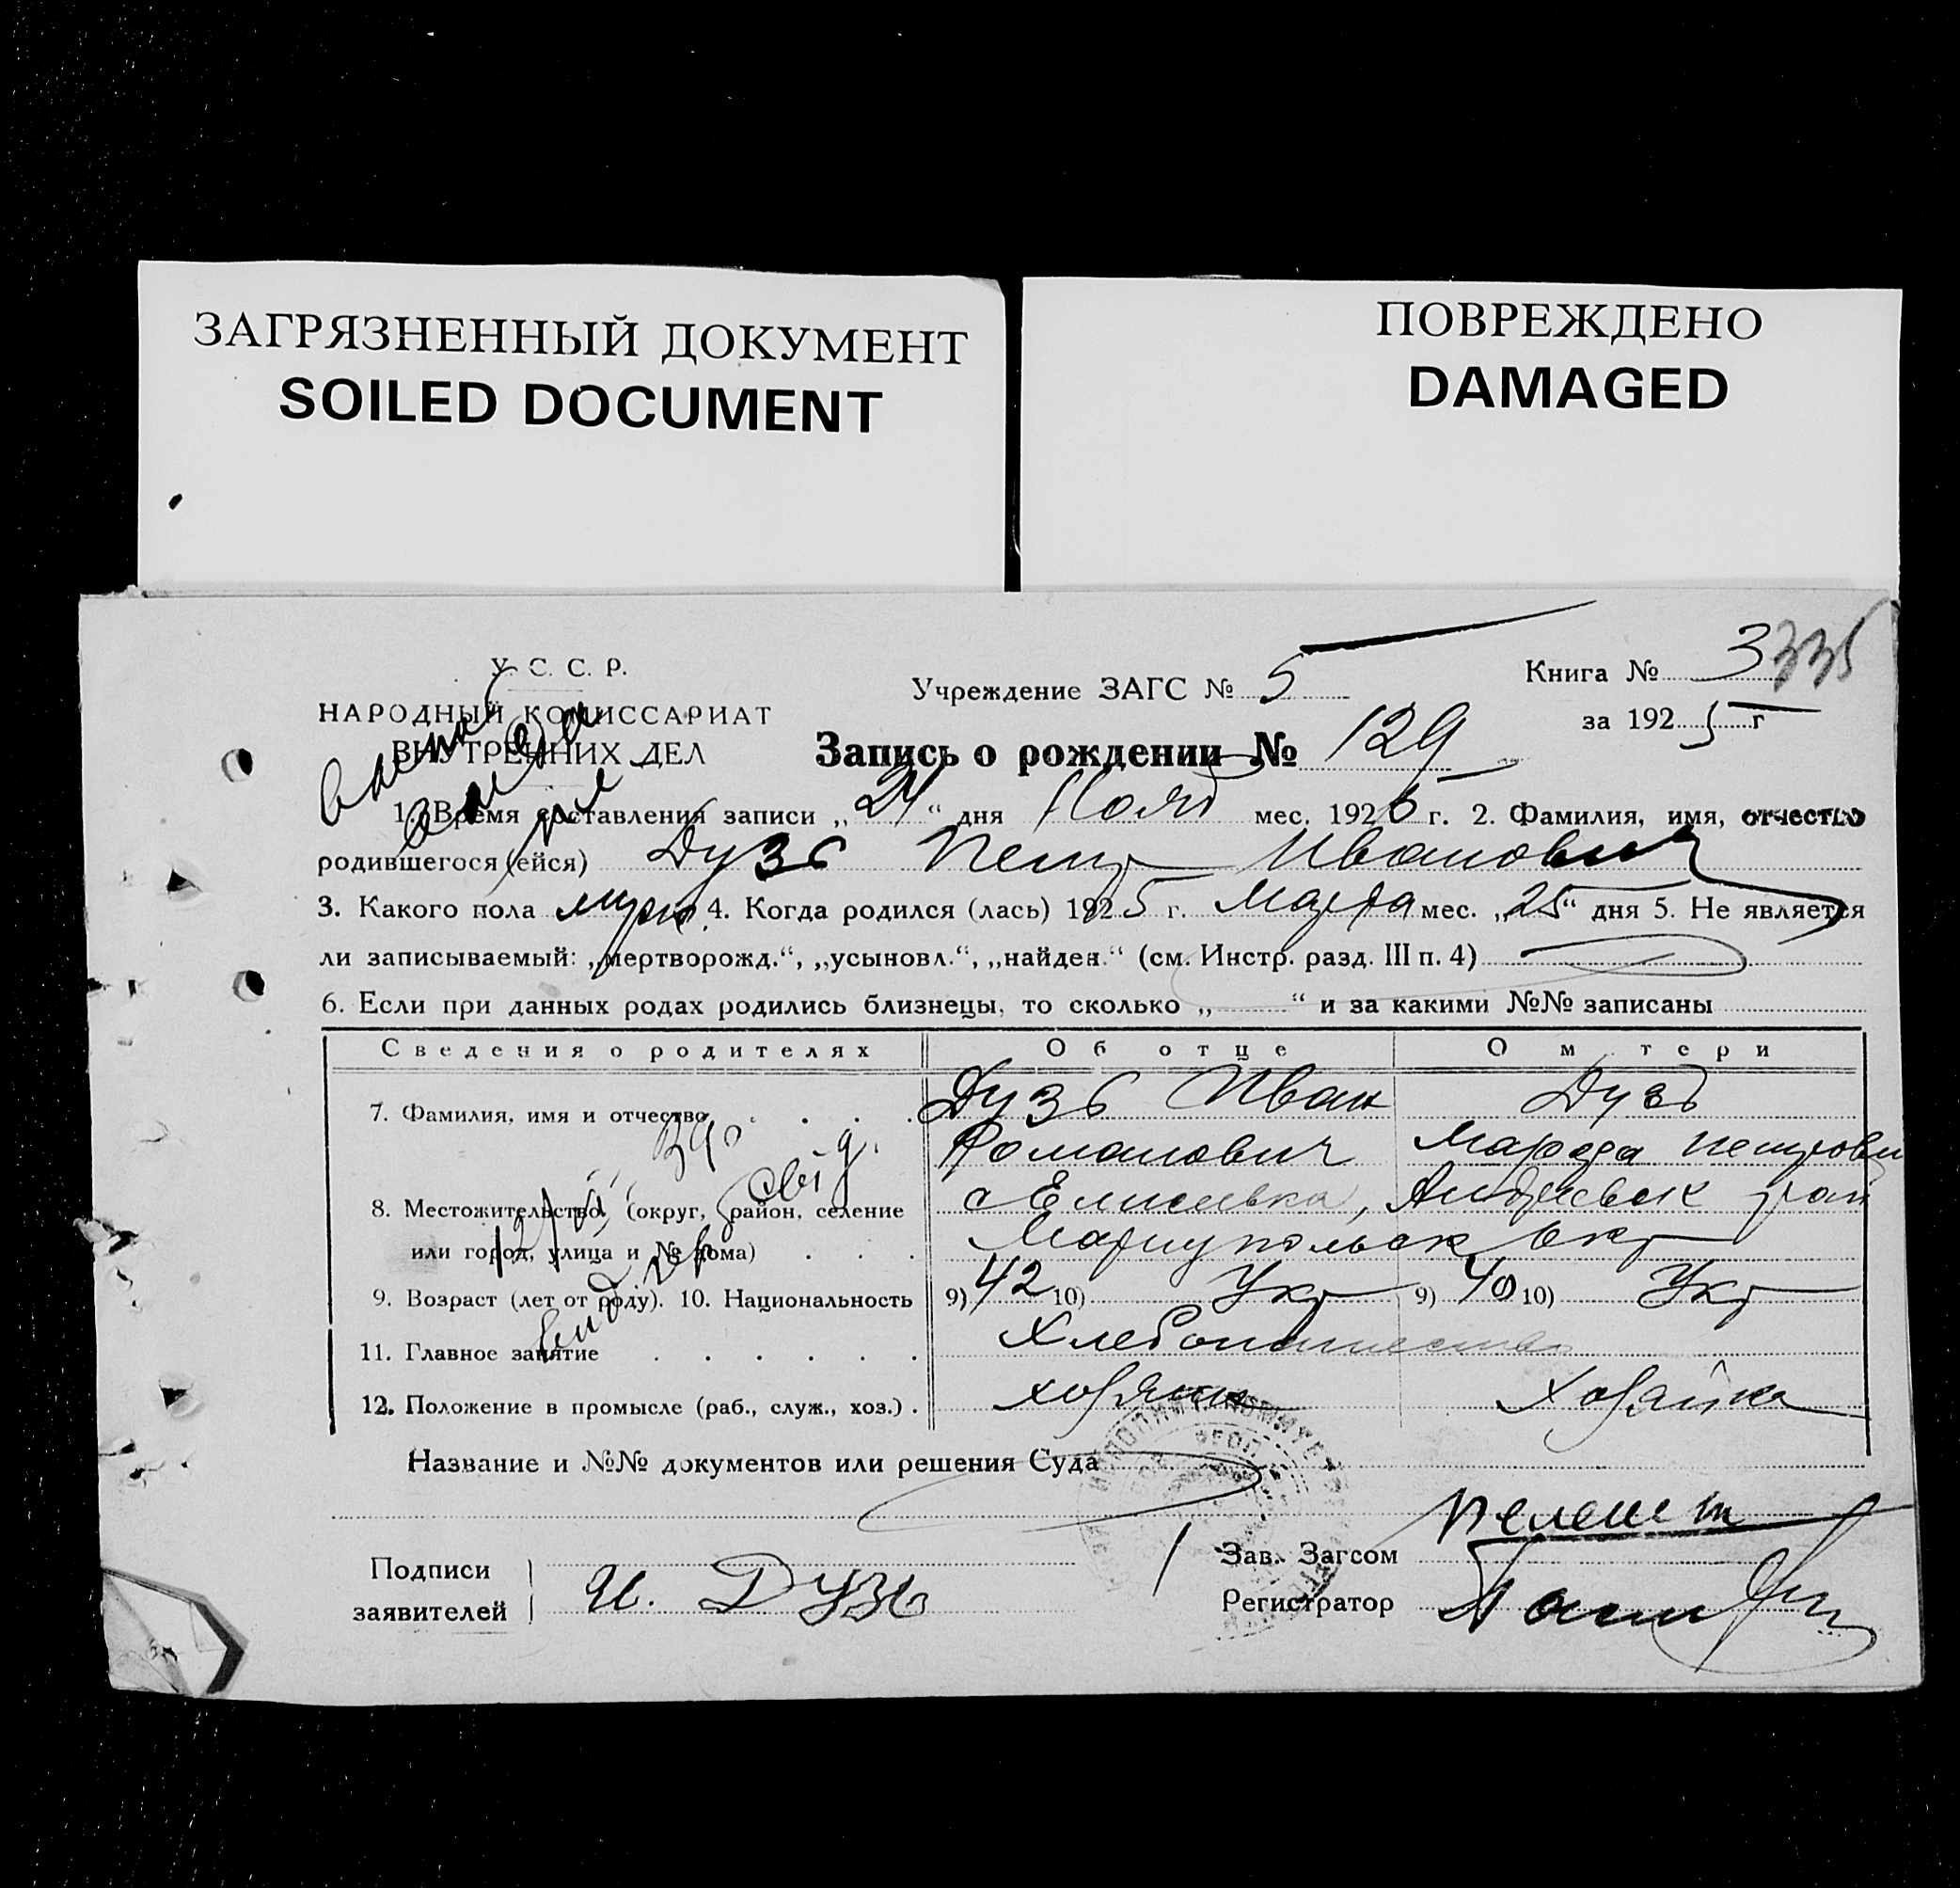 ЗАГРЯЗНЕННЫЙ ДОКУМЕНТ
SOILED DOCUMENT
ПОВРЕЖДЕНО
DAMAGED
У. С. С. Р.
НАРОДНЫЙ КОМИССАРИАТ
ВНУТРЕННИХ ДЕЛ
Учреждение ЗАГС № 5
Книга № 3
335
за 1925 г
Запись о рождении № 129
1. Время составления записи „24“ дня Нояб мес. 192 г. 2. Фамилия, имя, отчество
родившегося (ейся) Дузь Петр Иванович
3. Какого пола муж. 4. Когда родился (лась) 1925 г. Марта мес. „25“ дня 5. Не является
ли записываемый: „мертворожд.“, „усыновл.“, „найден.“ (см. Инстр. разд. III п. 4)
6. Если при данных родах родились близнецы, то сколько „ “ и за какими №№ записаны
Сведения о родителях Об отце О м тери
7. Фамилия, имя и отчество Дузь Иван Дузь
Романович Марфа Петровн
8. Местожительство (округ, район, селение с Елисивка, Андреевск рай
или город, улица и № дома) Мариупольск Окр
9. Возраст (лет от роду). 10. Национальность 9) 42 10) Укр 9) 40 10) Укр
11. Главное занятие Хлебопашество
12. Положение в промысле (раб., служ., хоз.) хозяин Хозяйка
Название и №№ документов или решения Суда
Подписи
заявителей И. Дузь
Зав. Загсом
Регистратор